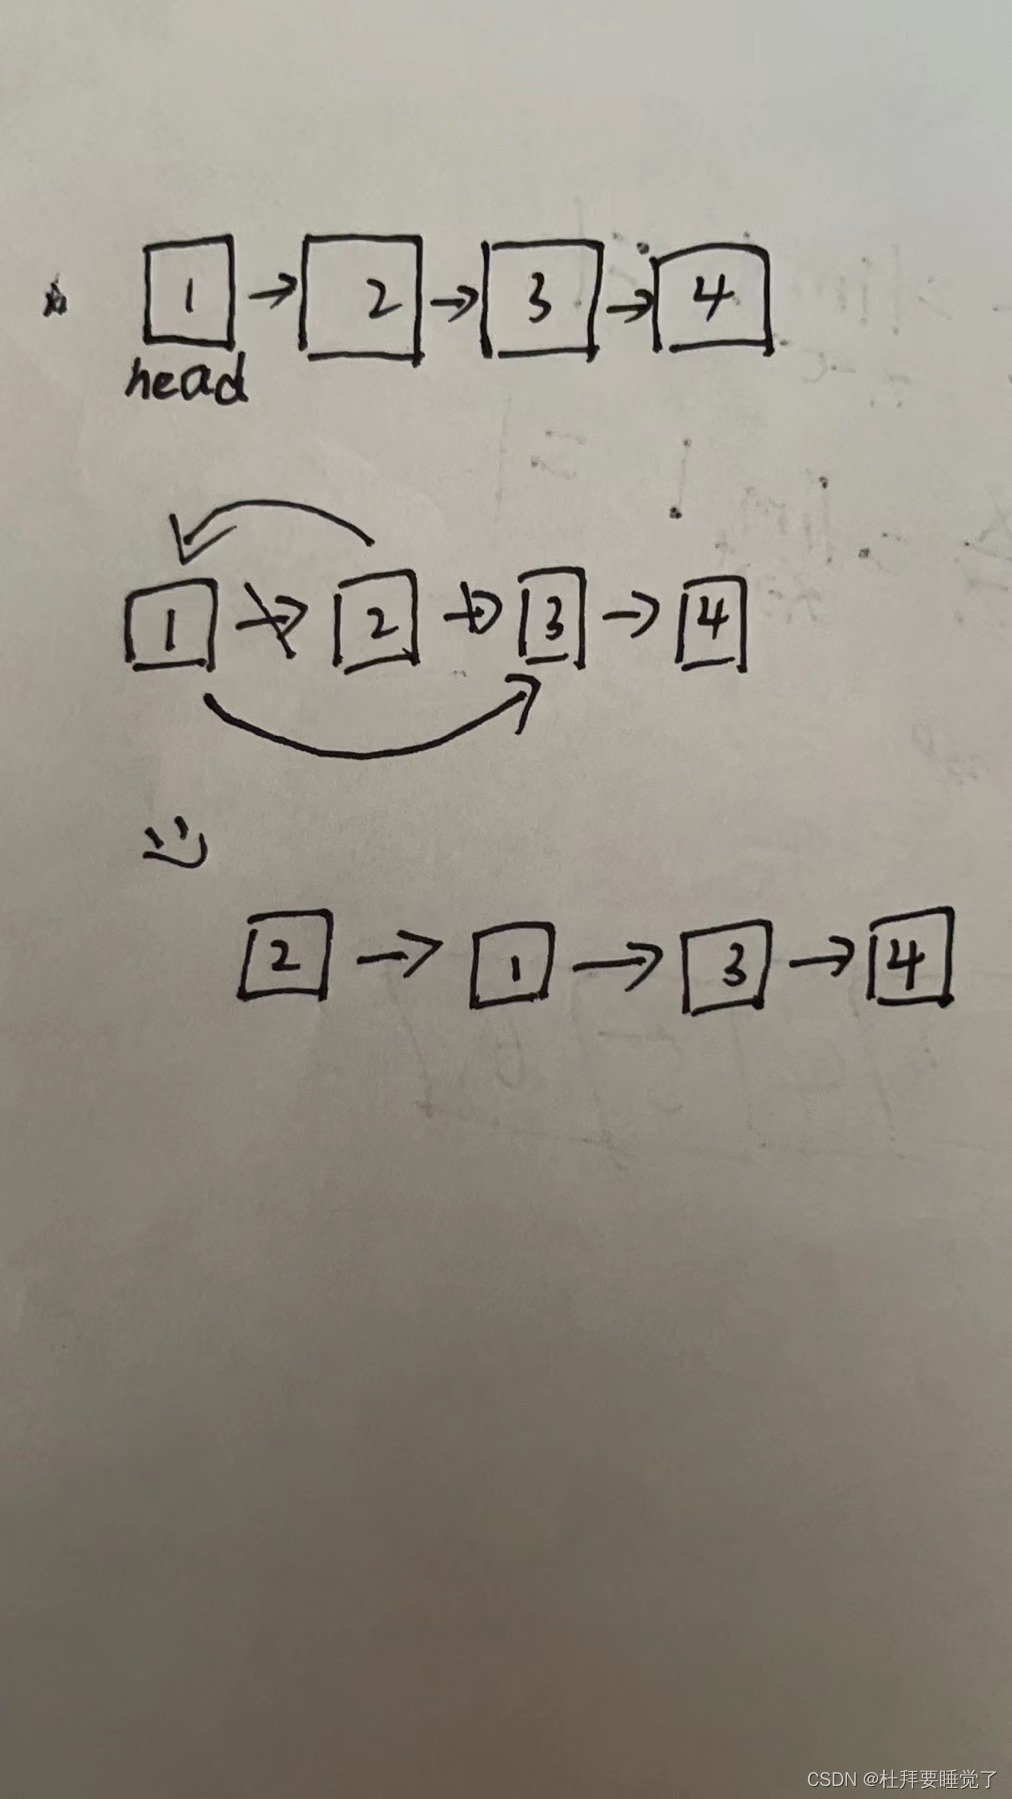 1 → 2 → 3 → 4
head
1 → 2 → 3 → 4
2 → 1 → 3 → 4
CSDN @杜拜要睡觉了